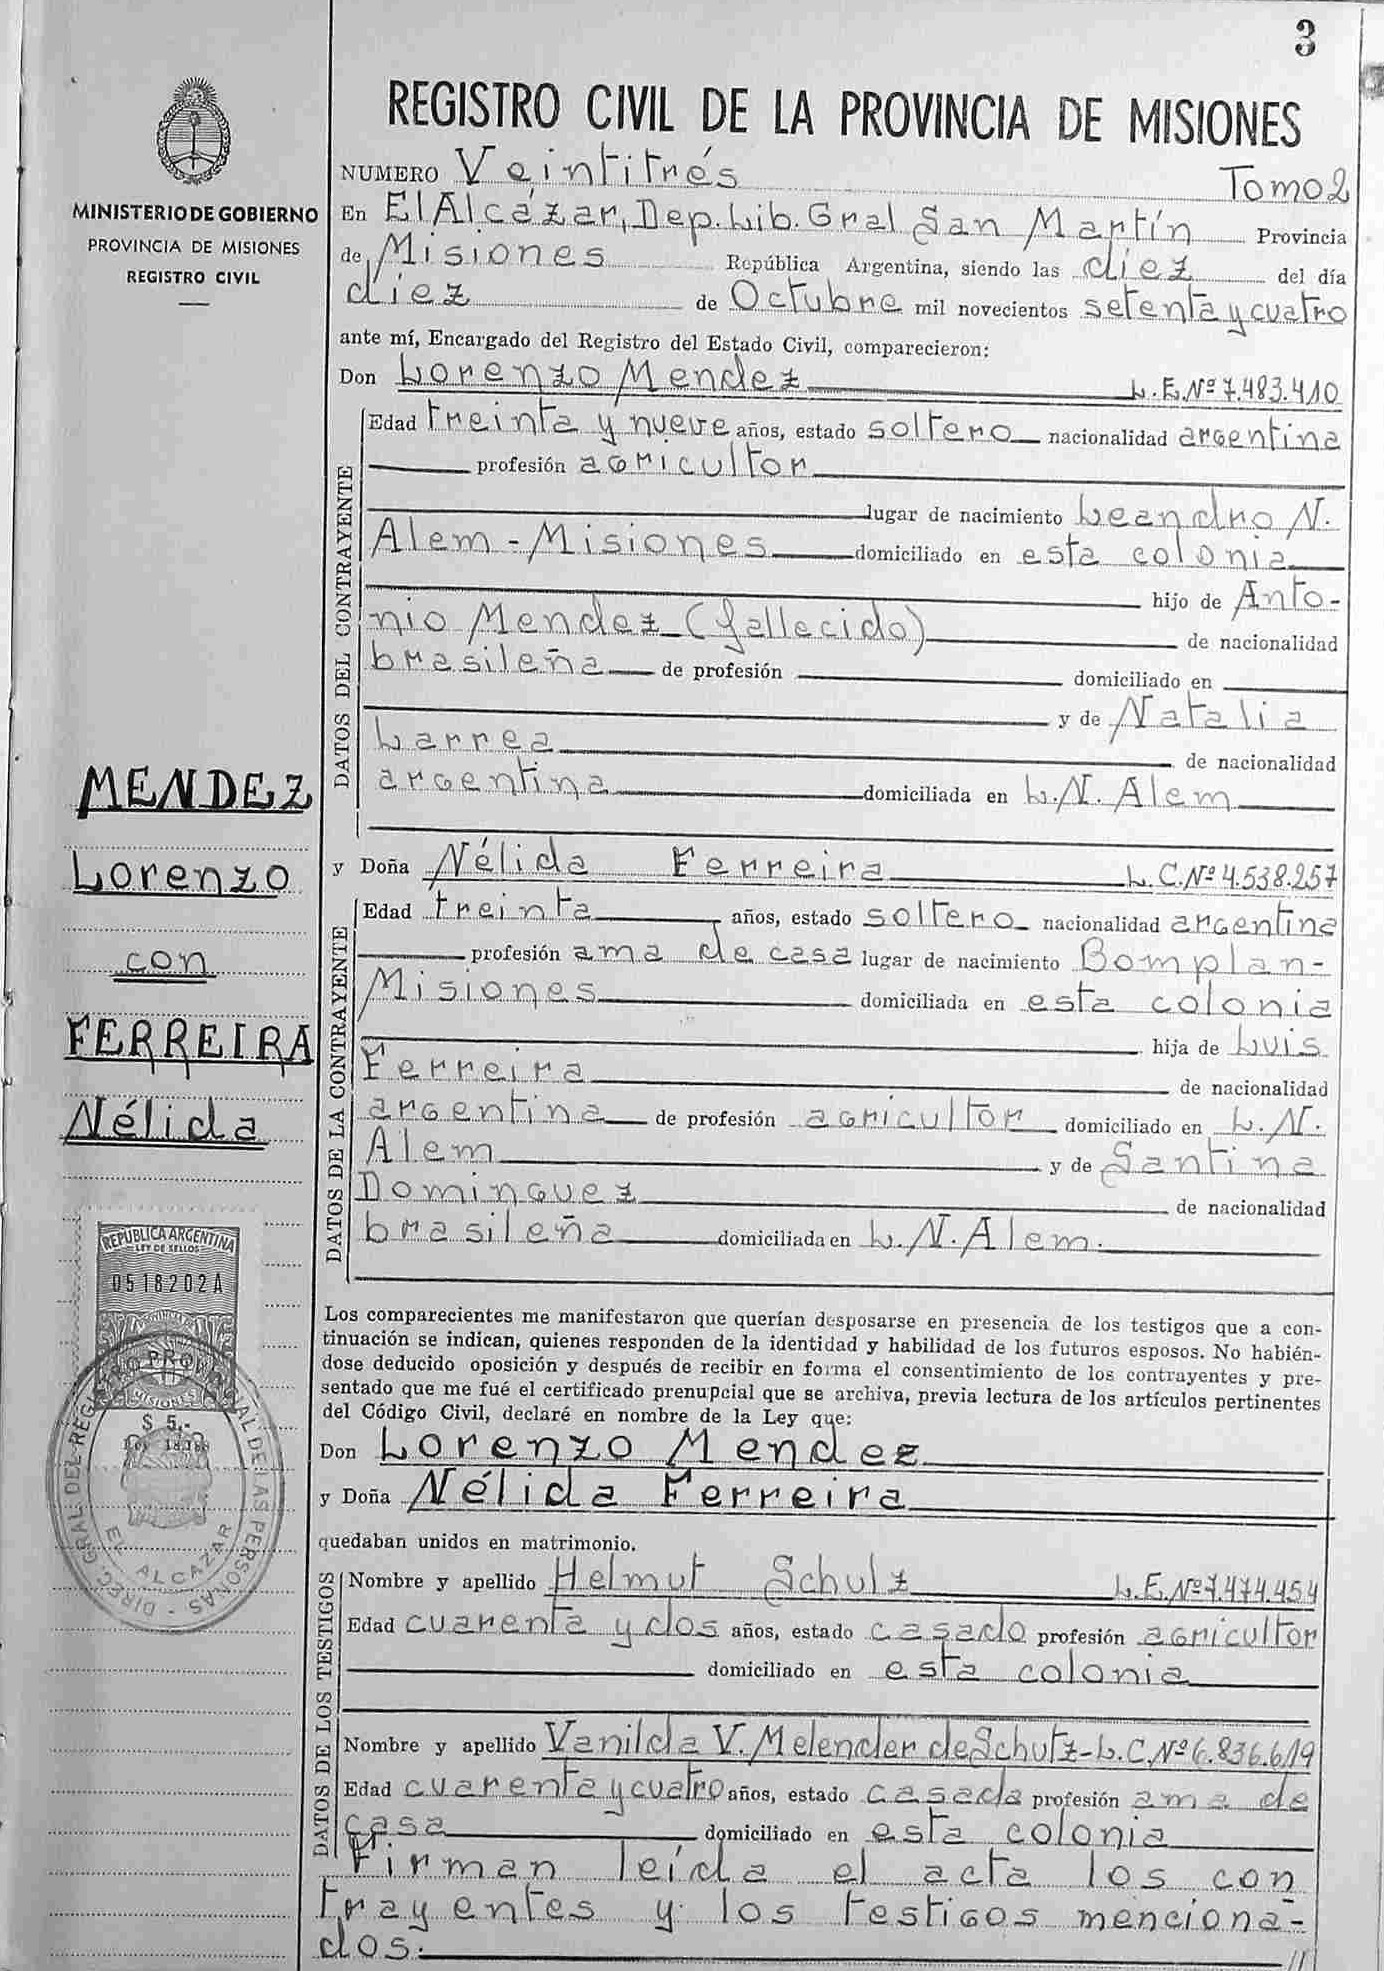 3
REGISTRO CIVIL DE LA PROVINCIA DE MISIONES
MINISTERIO DE GOBIERNO
PROVINCIA DE MISIONES
REGISTRO CIVIL
NUMERO Veintitrés Tomo 2
En El Alcázar, Dep. Lib. Gral San Martín Provincia
de Misiones República Argentina, siendo las diez del día
diez de Octubre mil novecientos setenta y cuatro
ante mí, Encargado del Registro del Estado Civil, comparecieron:
Don Lorenzo Mendez L.E.Nº 7.483.410
DATOS DEL CONTRAYENTE
Edad treinta y nueve años, estado soltero nacionalidad argentina
profesión agricultor
lugar de nacimiento Leandro N.
Alem - Misiones domiciliado en esta colonia
hijo de Anto-
nio Mendez (fallecido) de nacionalidad
brasileña de profesión domiciliado en
y de Natalia
Larrea de nacionalidad
argentina domiciliada en L.N. Alem
y Doña Nélida Ferreira L.C.Nº 4.538.257
DATOS DE LA CONTRAYENTE
Edad treinta años, estado soltero nacionalidad argentina
profesión ama de casa lugar de nacimiento Bomplan-
Misiones domiciliada en esta colonia
hija de Luis
Ferreira de nacionalidad
argentina de profesión agricultor domiciliado en L.N.
Alem y de Santina
Dominguez de nacionalidad
brasileña domiciliada en L.N. Alem.
Los comparecientes me manifestaron que querían desposarse en presencia de los testigos que a con-
tinuación se indican, quienes responden de la identidad y habilidad de los futuros esposos. No habién-
dose deducido oposición y después de recibir en forma el consentimiento de los contrayentes y pre-
sentado que me fué el certificado prenupcial que se archiva, previa lectura de los artículos pertinentes
del Código Civil, declaré en nombre de la Ley que:
Don Lorenzo Mendez
y Doña Nélida Ferreira
quedaban unidos en matrimonio.
DATOS DE LOS TESTIGOS
Nombre y apellido Helmut Schulz L.E.Nº 7.474.454
Edad cuarenta y dos años, estado casado profesión agricultor
domiciliado en esta colonia
Nombre y apellido Vanilda V. Melender de Schutz - L.C.Nº 6.836.619
Edad cuarenta y cuatro años, estado casada profesión ama de
casa domiciliado en esta colonia
Firman leída el acta los con
trayentes y los testigos menciona-
dos. //
MENDEZ
Lorenzo
con
FERREIRA
Nélida
REPUBLICA ARGENTINA
LEY DE SELLOS
0518202A
MISIONES
$ 5.-
DIREC. GRAL. DEL REGISTRO PROVINCIAL DE LAS PERSONAS
EL ALCAZAR